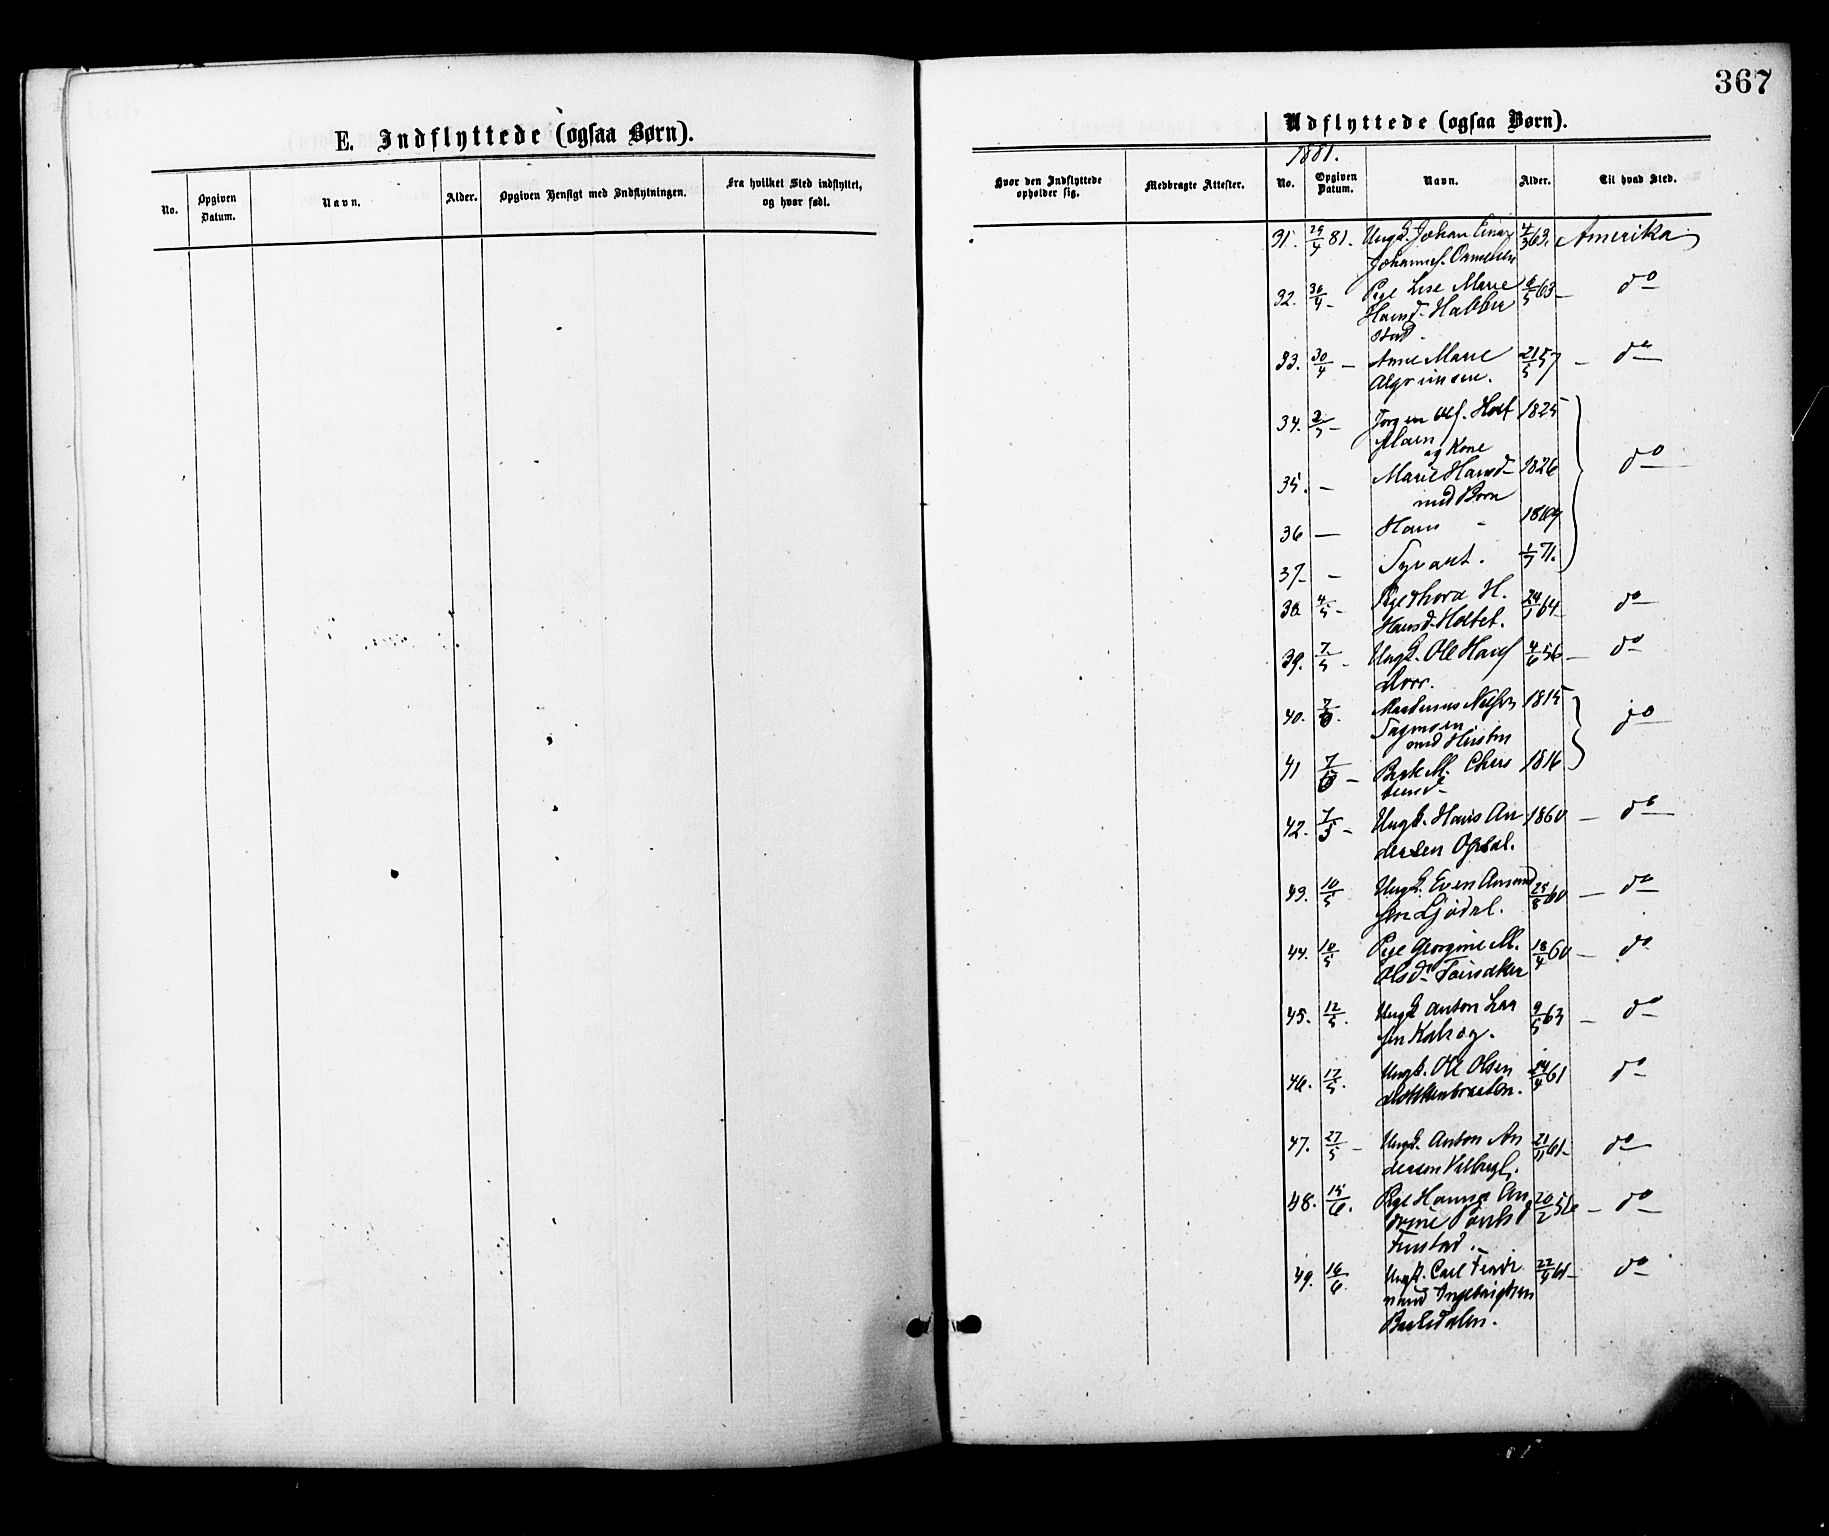 367
E. Indflyttede (ogsaa Børn).
No.
Opgiven Datum.
Navn.
Alder.
Opgiven Hensigt med Indflytningen.
Fra hvilket Sted indflyttet, og hvor født.
Udflyttede (ogsaa Børn).
1881.
Hvor den Indflyttede opholder sig.
Medbragte Attester.
No.
Opgiven Datum.
Navn.
Alder.
Til hvad Sted.
31. 29/4 81. Ungk. Johan Einar 4/3 63. Amerika
Johannes.
32. 30/4 - Pige Lise Marie 6/5 63 - do
Hansd.
stad.
33. 30/4 - Anne Marie 21/5 57 - do
Algrimsen.
34. 2/5 - Jørgen Olss. Holt 1825
og Kone
35. - Marie Hansd. 1826 do
med Børn
36 - Hans - 1869
37 - Syvart. 1/7 71.
38 4/5 - Pige Thora H. 24/1 64 do
Hansd. Holtet.
39. 7/5 - Ungk. Ole Hans 4/6 56 - do
40. 7/5. Rasmus Nilsen 1815 do
med Hustru
41 7/5 - Berte M. Chris 1816
tensd.
42. 7/5 - Ungk. Hans An 1860 - do
dersen Opsal.
43. 10/5 Ungk. Even Amund 25/8 60 - do
sen Ljødal.
44. 10/5 Pige Georgine M. 18/4 60 - do
Olsd.
45. 12/5. Ungk. Anton Lar 9/5 63 - do
sen
46. 12/5. Ungk. Ole Olsen 24/4 61 do
47. 27/5 - Ungk. Anton An 21/11 61 - do
dersen
48. 15/6. Pige Hanna An 20/2 56 - do
drine Paulsd
Finstad.
49. 16/6. Ungk. Carl Ferdi 22/4 61 - do
nand Ingebrigtsen